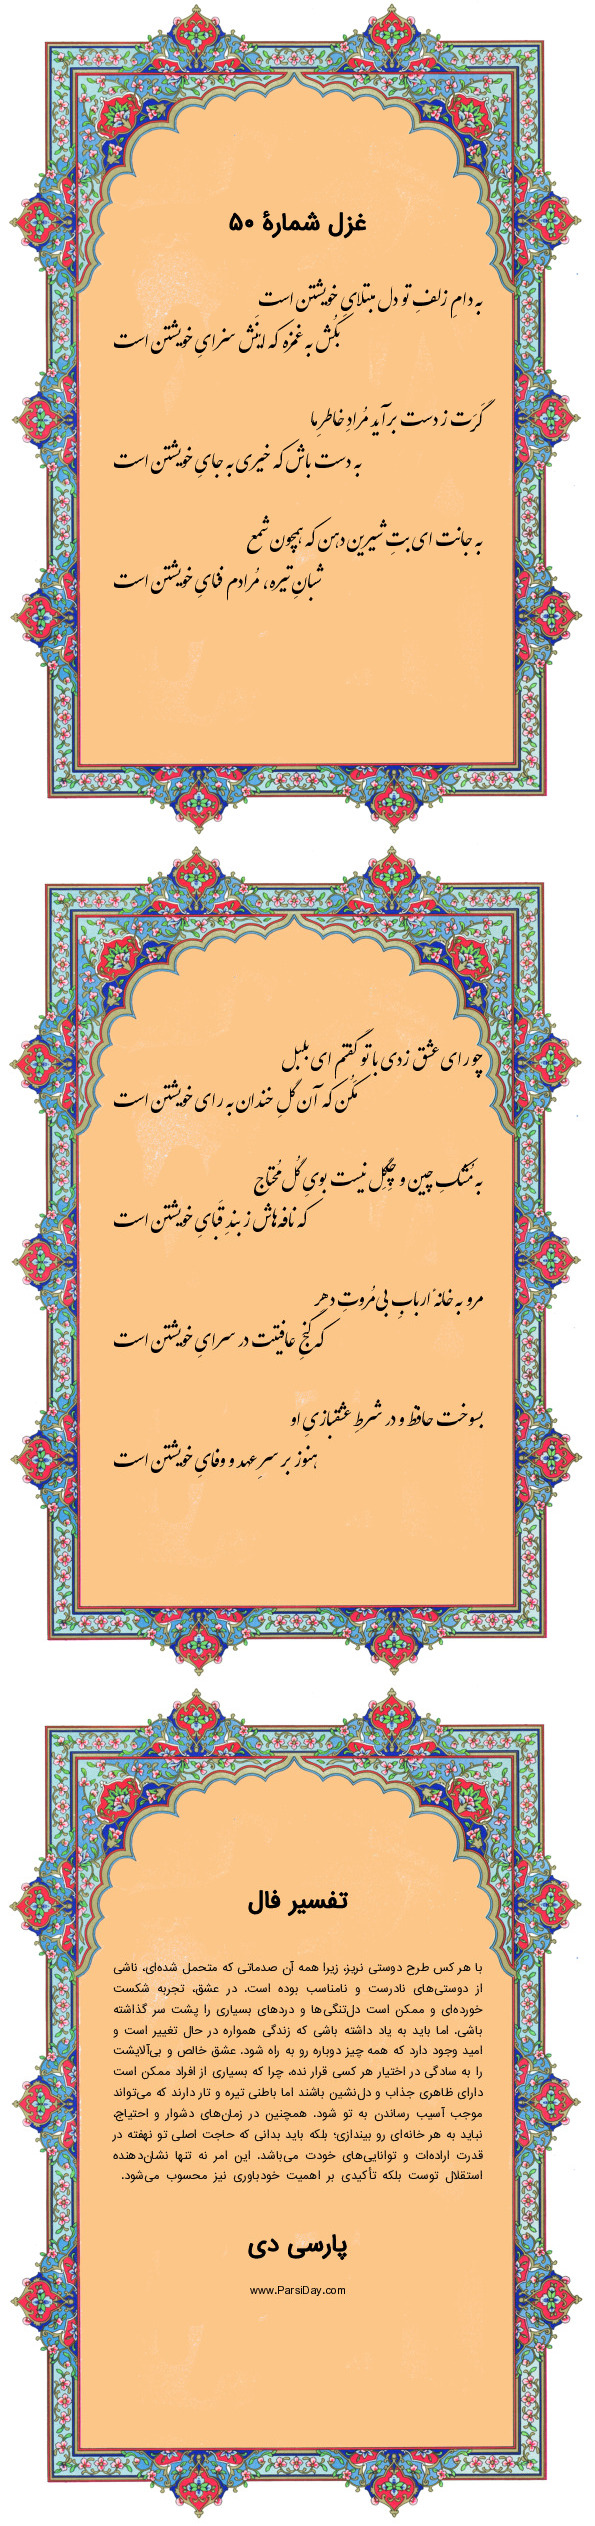 غزل شمارهٔ ۵۰
به دامِ زلفِ تو دل مبتلایِ خویشتن است
بِکُش به غمزه که اینَش سزایِ خویشتن است
گَرَت ز دست برآید مُرادِ خاطرِ ما
به دست باش که خیری به جایِ خویشتن است
به جانت ای بتِ شیرین دهن که همچون شمع
شبانِ تیره، مُرادم فنایِ خویشتن است
چو رای عشق زدی با تو گفتم ای بلبل
مَکُن که آن گلِ خندان به رای خویشتن است
به مُشکِ چین و چِگِل نیست بویِ گُل مُحتاج
که نافه‌هاش ز بندِ قَبایِ خویشتن است
مرو به خانهٔ اربابِ بی‌مُروتِ دهر
که گنجِ عافیتت در سرایِ خویشتن است
بسوخت حافظ و در شرطِ عشقبازیِ او
هنوز بر سرِ عهد و وفایِ خویشتن است
تفسیر فال
با هر کس طرح دوستی نریز، زیرا همه آن صدماتی که متحمل شده‌ای، ناشی
از دوستی‌های نادرست و نامناسب بوده است. در عشق، تجربه شکست
خورده‌ای و ممکن است دل‌تنگی‌ها و دردهای بسیاری را پشت سر گذاشته
باشی. اما باید به یاد داشته باشی که زندگی همواره در حال تغییر است و
امید وجود دارد که همه چیز دوباره رو به راه شود. عشق خالص و بی‌آلایشت
را به سادگی در اختیار هر کسی قرار نده، چرا که بسیاری از افراد ممکن است
دارای ظاهری جذاب و دل‌نشین باشند اما باطنی تیره و تار دارند که می‌تواند
موجب آسیب رساندن به تو شود. همچنین در زمان‌های دشوار و احتیاج،
نباید به هر خانه‌ای رو بیندازی؛ بلکه باید بدانی که حاجت اصلی تو نهفته در
قدرت اراده‌ات و توانایی‌های خودت می‌باشد. این امر نه تنها نشان‌دهنده
استقلال توست بلکه تأکیدی بر اهمیت خودباوری نیز محسوب می‌شود.
پارسی دی
www.ParsiDay.com